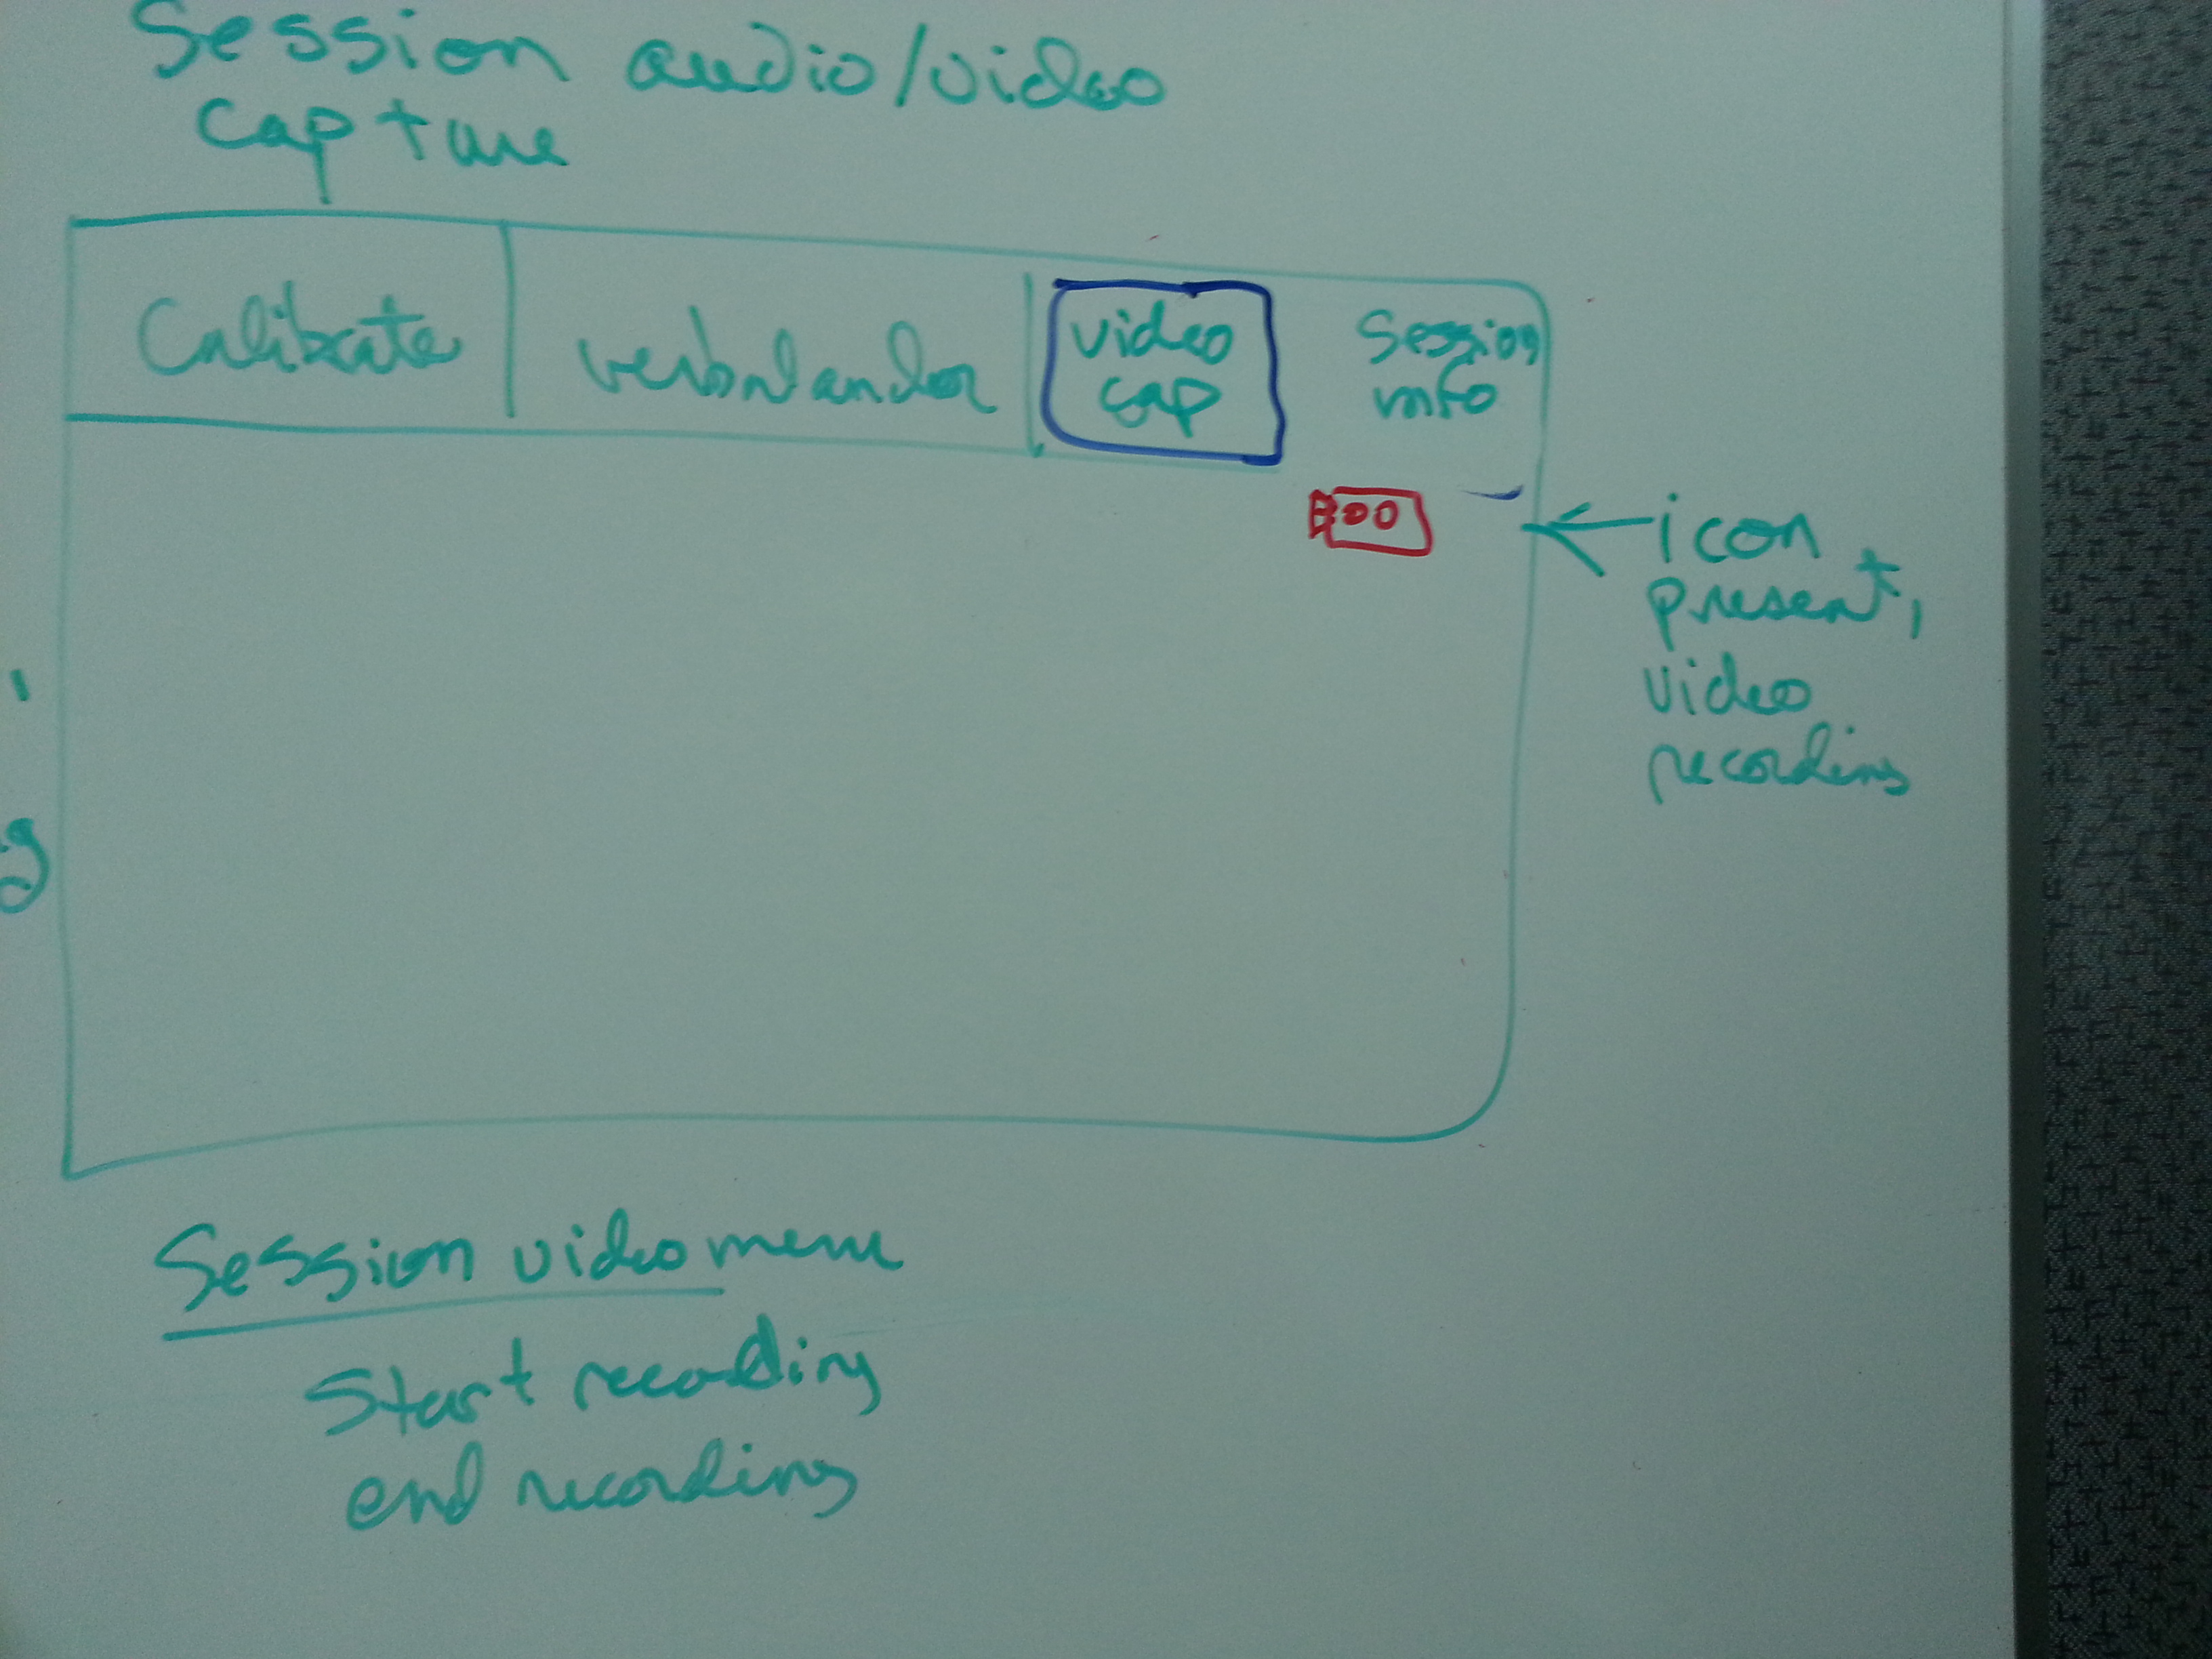 Session audio/video
capture
Calibrate
verbal anchor
video
cap
Session
info
icon
present,
video
recording
g
Session video menu
Start recording
end recording